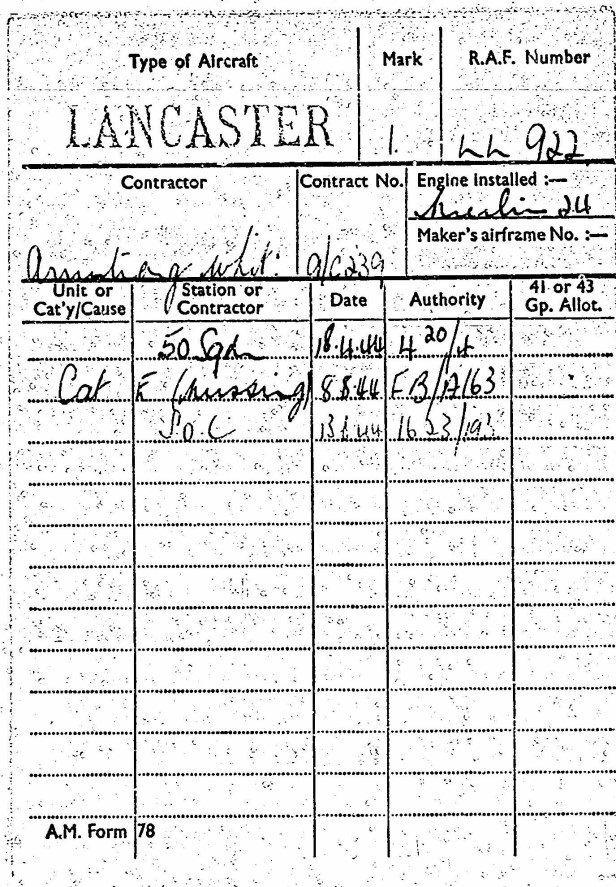 Type of Aircraft Mark R.A.F. Number
LANCASTER 1. LL 922
Contractor Contract No. Engine installed :—
Merlin 24
Maker's airframe No. :—
Armstrong Whit: a/c239
Unit or Cat'y/Cause Station or Contractor Date Authority 41 or 43 Gp. Allot.
50 Sqdn 18.4.44 4 20/4
Cat E (missing) 8.8.44 FB/A/63
S.O.C 13.8.44 1623/193
A.M. Form 78